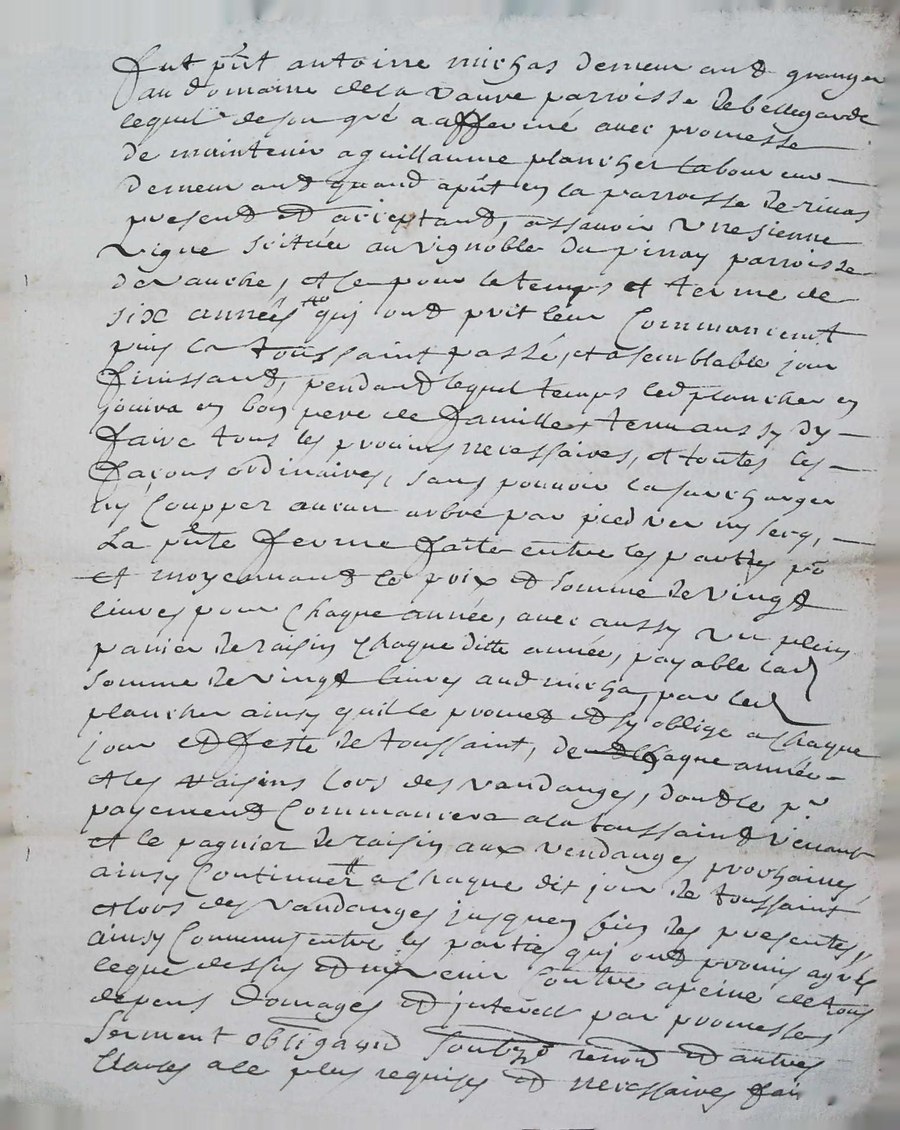 fut pnt antoine michas demeurand granger
au domaine de la vaure parroisse de bellegarde
lequel de son gré a affermé avec promesse
de maintenir a guillaume plancher laboureur
demeurand quand apnt en la parroisse de rivas
presend et acceptand, assavoir une sienne
vigne scituée au vignoble du pinay parroisse
de vauche, et ce pour le temps et terme de
six années qui ont prit leur commancemt
puis la toussaint passé, et a semblable jour
finissand, pendand lequel temps led plancher en
jouira en bon pere de famille, tenu aussy dy
faire tous les provins necessaires, et toutes les
façons ordinaires, sans pouvoir la surcharger
ny coupper aucun arbre par pied ver ny secq,
La pnte ferme faite entre les parties po
et moyennand le prix et somme de vingt
livres pour chaque année, avec aussy un plein
panier de raisin chaque ditte année, payable lad
somme de vingt livres aud michas par led
plancher ainsy quil le promet et sy oblige a chaque
jour et feste de toussaint, de chaque année
et les raisins lors des vandanges, dont le pr
payement commancera a la toussaint venant
et le pagnier de raisin aux vendanges prochaines
ainsy continuer a chaque dit jour de toussaint
et lors des vandanges jusques fin des presentes,
ainsy convenu entre les parties qui ont promis agreer
le que dessus et ny venir contre a peine de tous
depens domages et interests par promesses
serment obligaond renond et autres
clauses a ce plus requises et necessaires fai